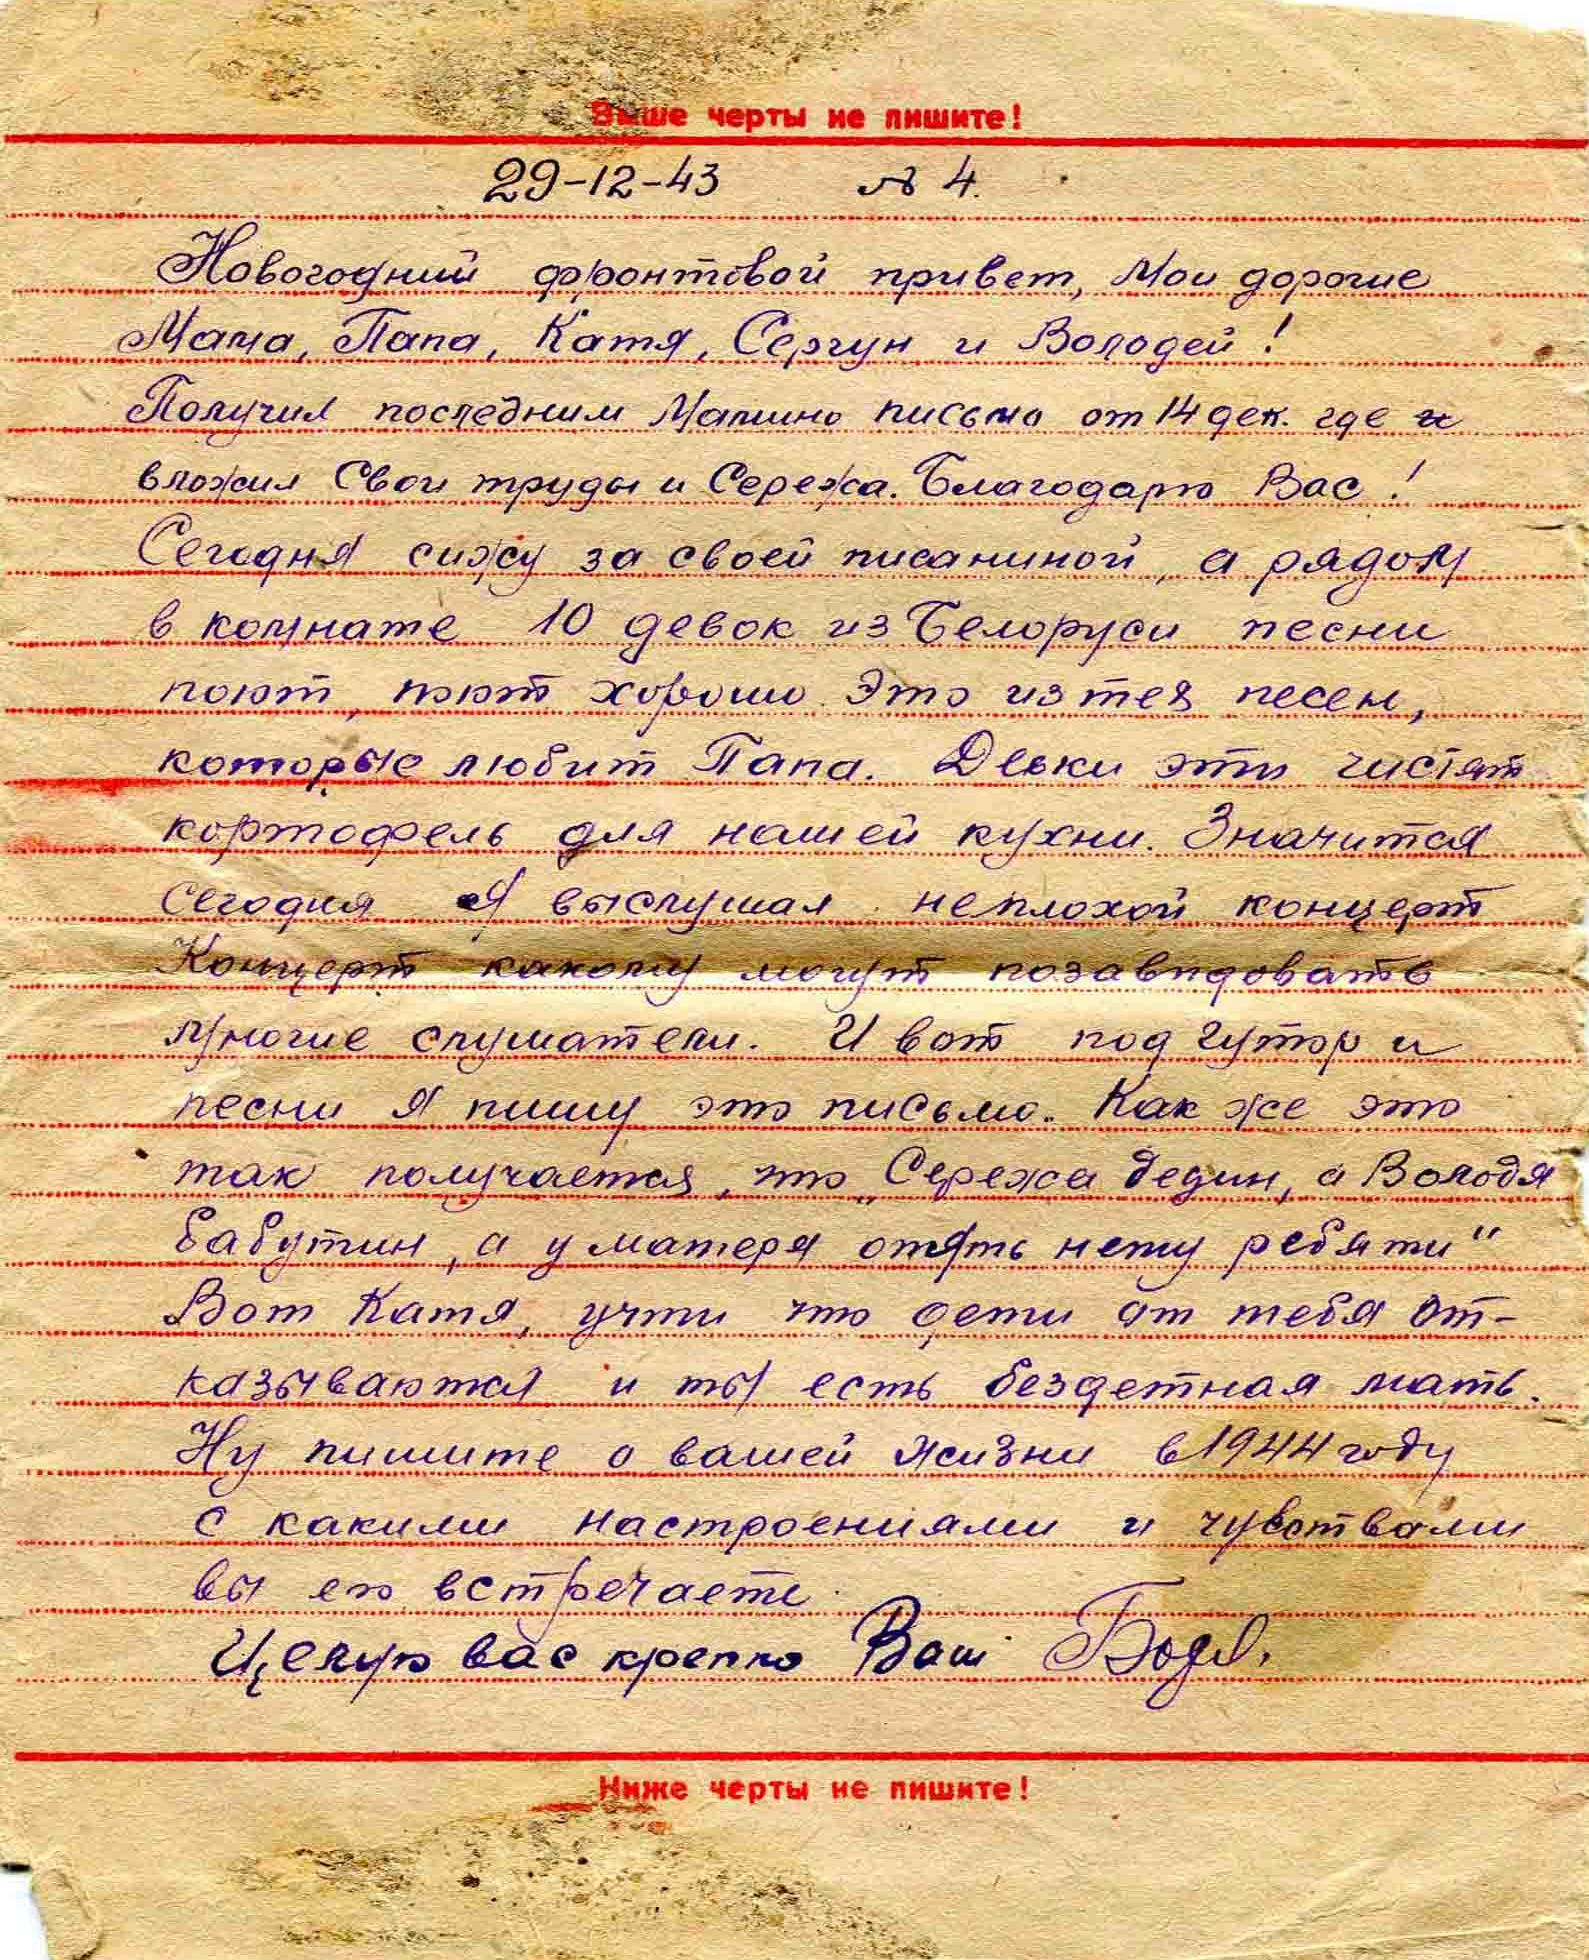 Выше черты не пишите!
29-12-43 № 4.
Новогодний фронтовой привет, Мои дорогие
Мама, Папа, Катя, Сергун и Володей!
Получил последним Мамино письмо от 14 дек. где и
вложил Свои труды и Сережа. Благодарю Вас!
Сегодня сижу за своей писаниной, а рядом
в комнате 10 девок из Белоруси песни
поют, поют хорошо. Это из тех песен,
которые любит Папа. Девки эти чистят
кортофель для нашей кухни. Значится
сегодня Я выслушал неплохой концерт
Концерт какому могут позавидовать
многие слушатели. И вот под гутор и
песни Я пишу это письмо. Как же это
так получается, что "Сережа дедин, а Володя
бабутин, а у матеря опять нету ребяти"
Вот Катя, учти что дети от тебя от-
казываются и ты есть бездетная мать.
Ну пишите о вашей жизни в 1944 году
с какими настроениями и чувствами
вы его встречаете.
Целую вас крепко Ваш
Ниже черты не пишите!